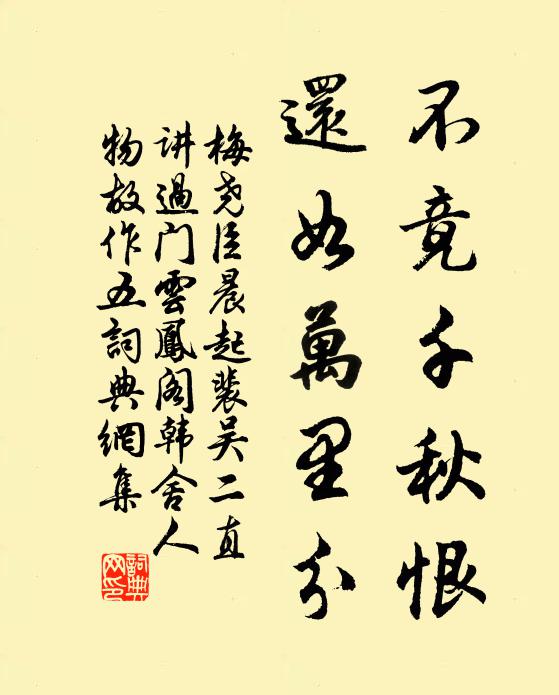 不竟千秋恨
還如萬里分
梅堯臣晨起裴吴二直
讲過门雲鳳阁韩舍人
物故作五詞典網集
詞典网印